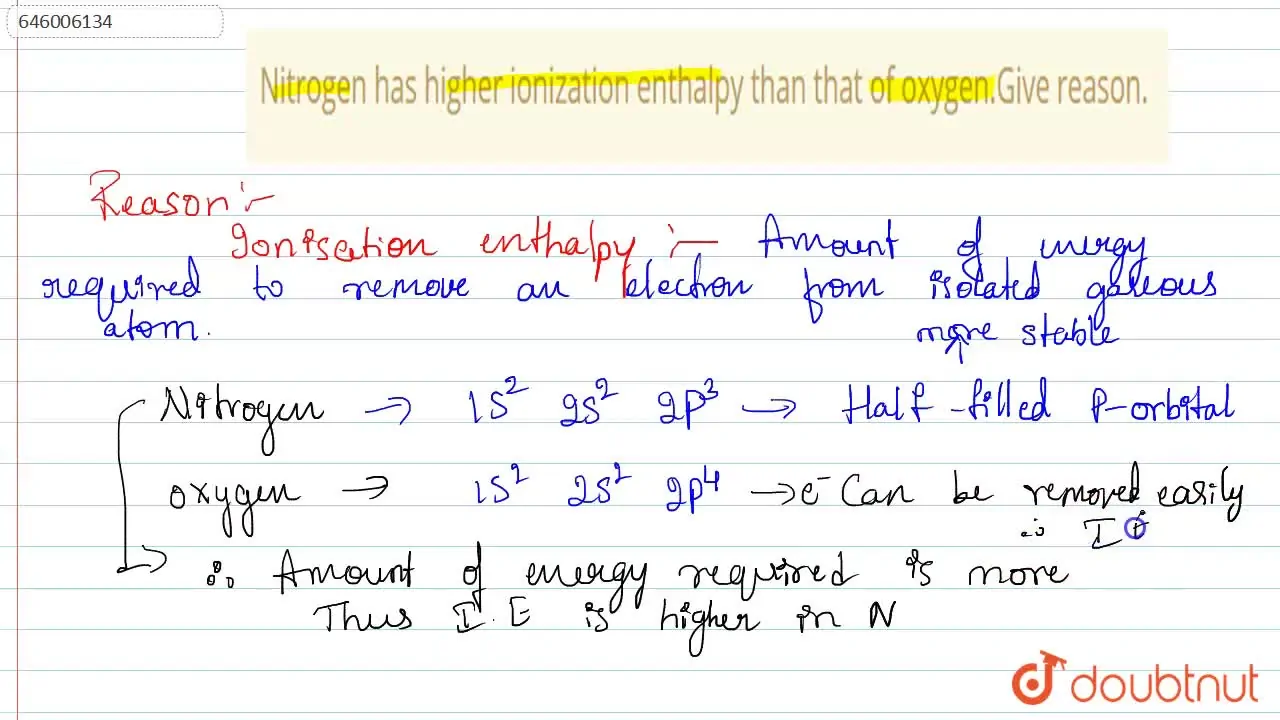 646006134
Nitrogen has higher ionization enthalpy than that of oxygen.Give reason.
Reason :-
Ionisation enthalpy :- Amount of energy
required to remove an electron from isolated gaseous
atom.
more stable
Nitrogen → 1S² 2S² 2P³ → Half-filled P-orbital
oxygen → 1S² 2S² 2P⁴ → e⁻ Can be removed easily
∴ I
∴ Amount of energy required is more
Thus I.E is higher in N
doubtnut